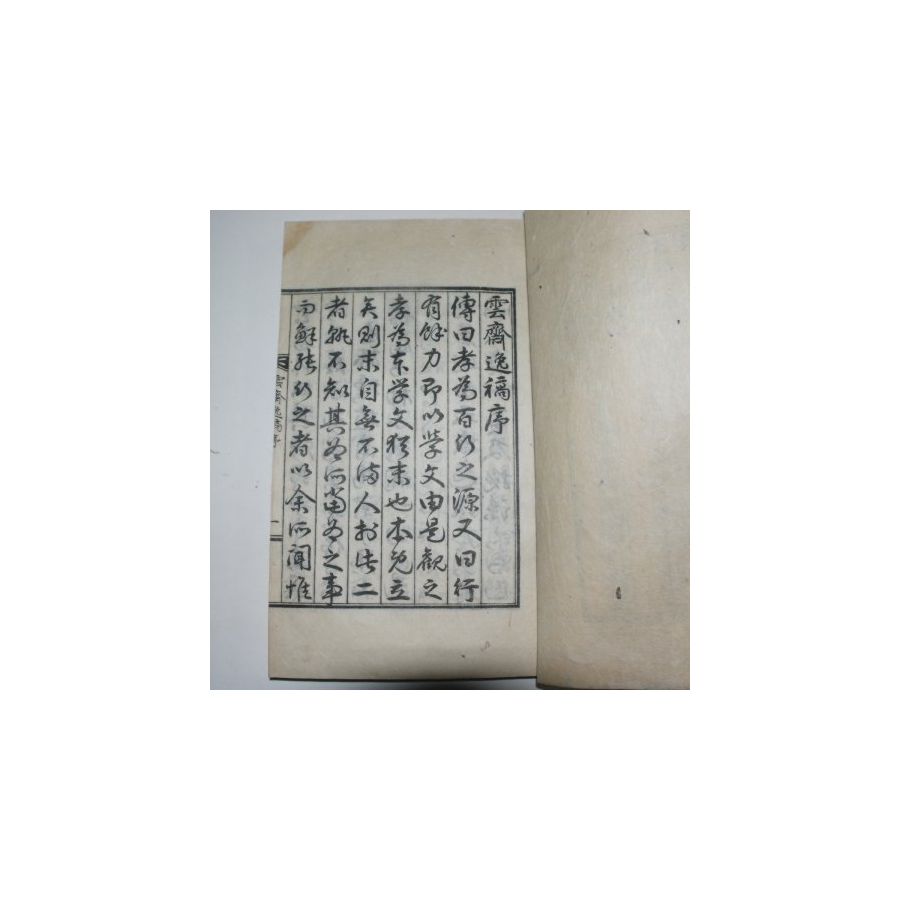 雲齋逸稿序
傳曰孝為百行之源又曰行
有餘力即以學文由是觀之
孝為本学文猶末也本既立
矣則末自無不備人於此二
者孰不知其為所當為之事
而鮮能行之者以余所聞惟
雲齋逸稿序
一